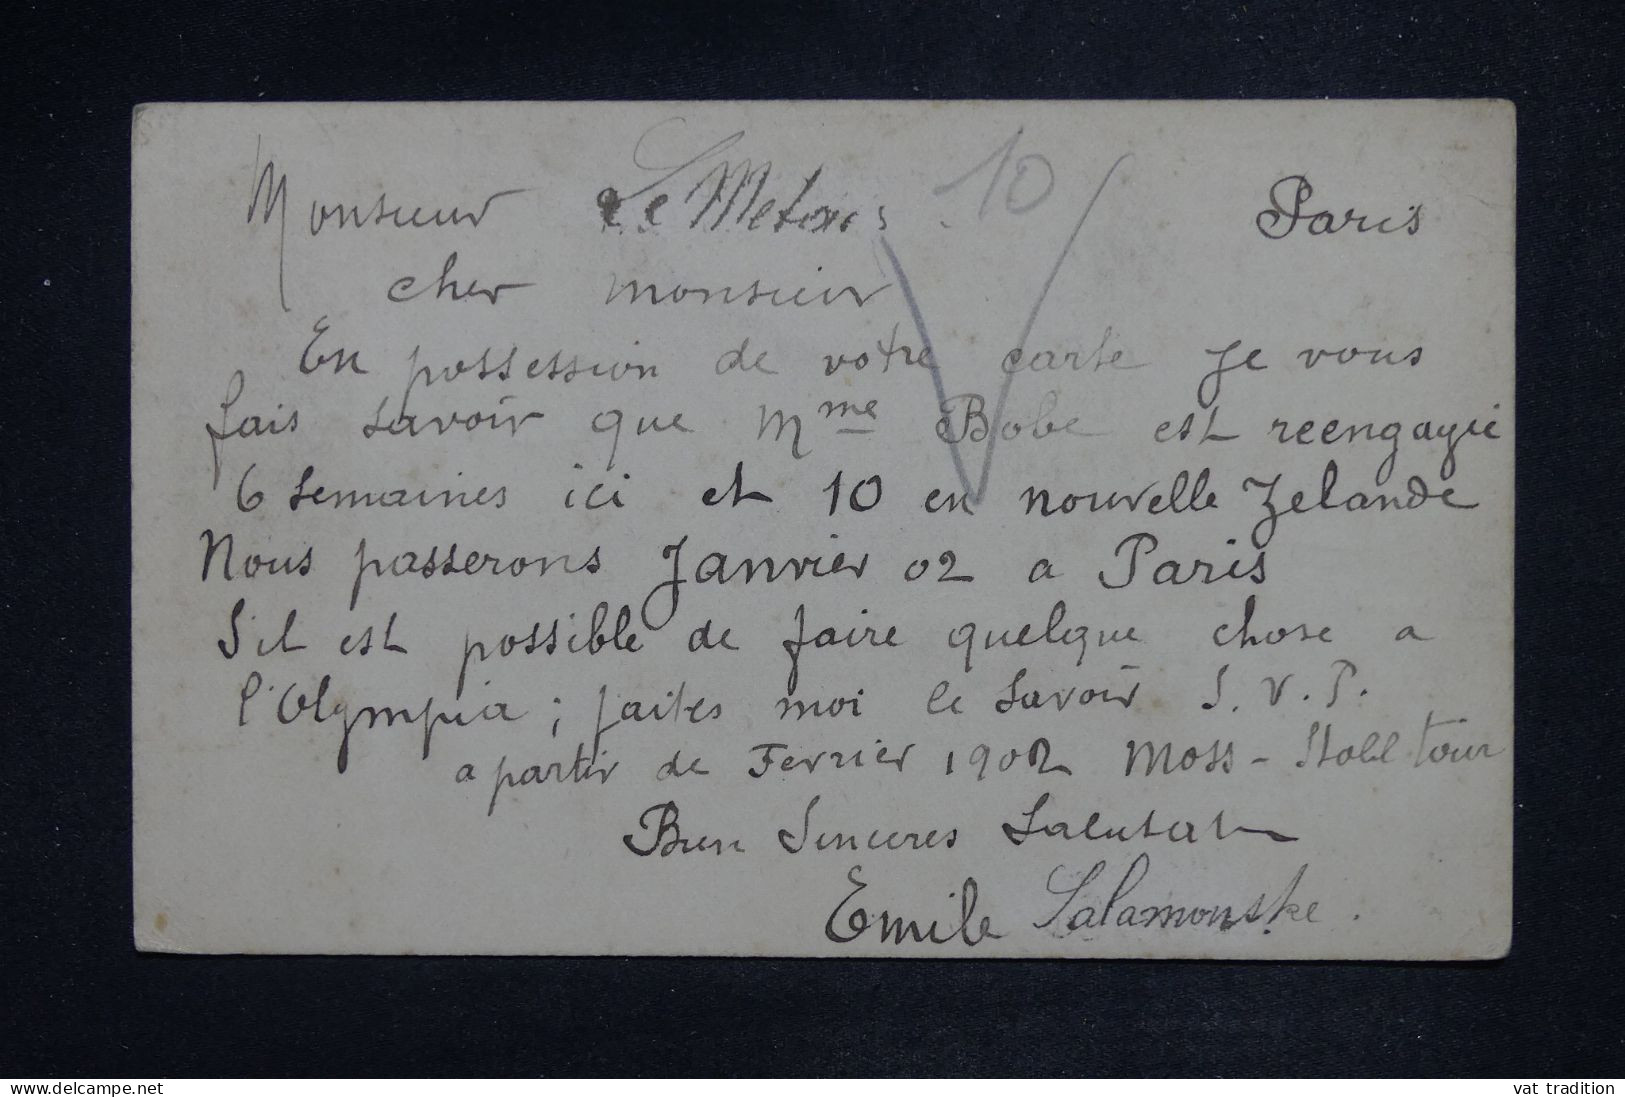 Monsieur Le Metais 10 Paris
cher monsieur
En possession de votre carte Je vous
fais savoir que Mme Bobe est reengagée
6 semaines ici et 10 en nouvelle Zelande
Nous passerons Janvier 02 a Paris
S'il est possible de faire quelque chose a
l'Olympia ; faites moi le savoir S. V. P.
a partir de Fevrier 1902 Moss - Stoll tour
Bien Sinceres Salutat
Emile Salamonske.
www.delcampe.net vat tradition